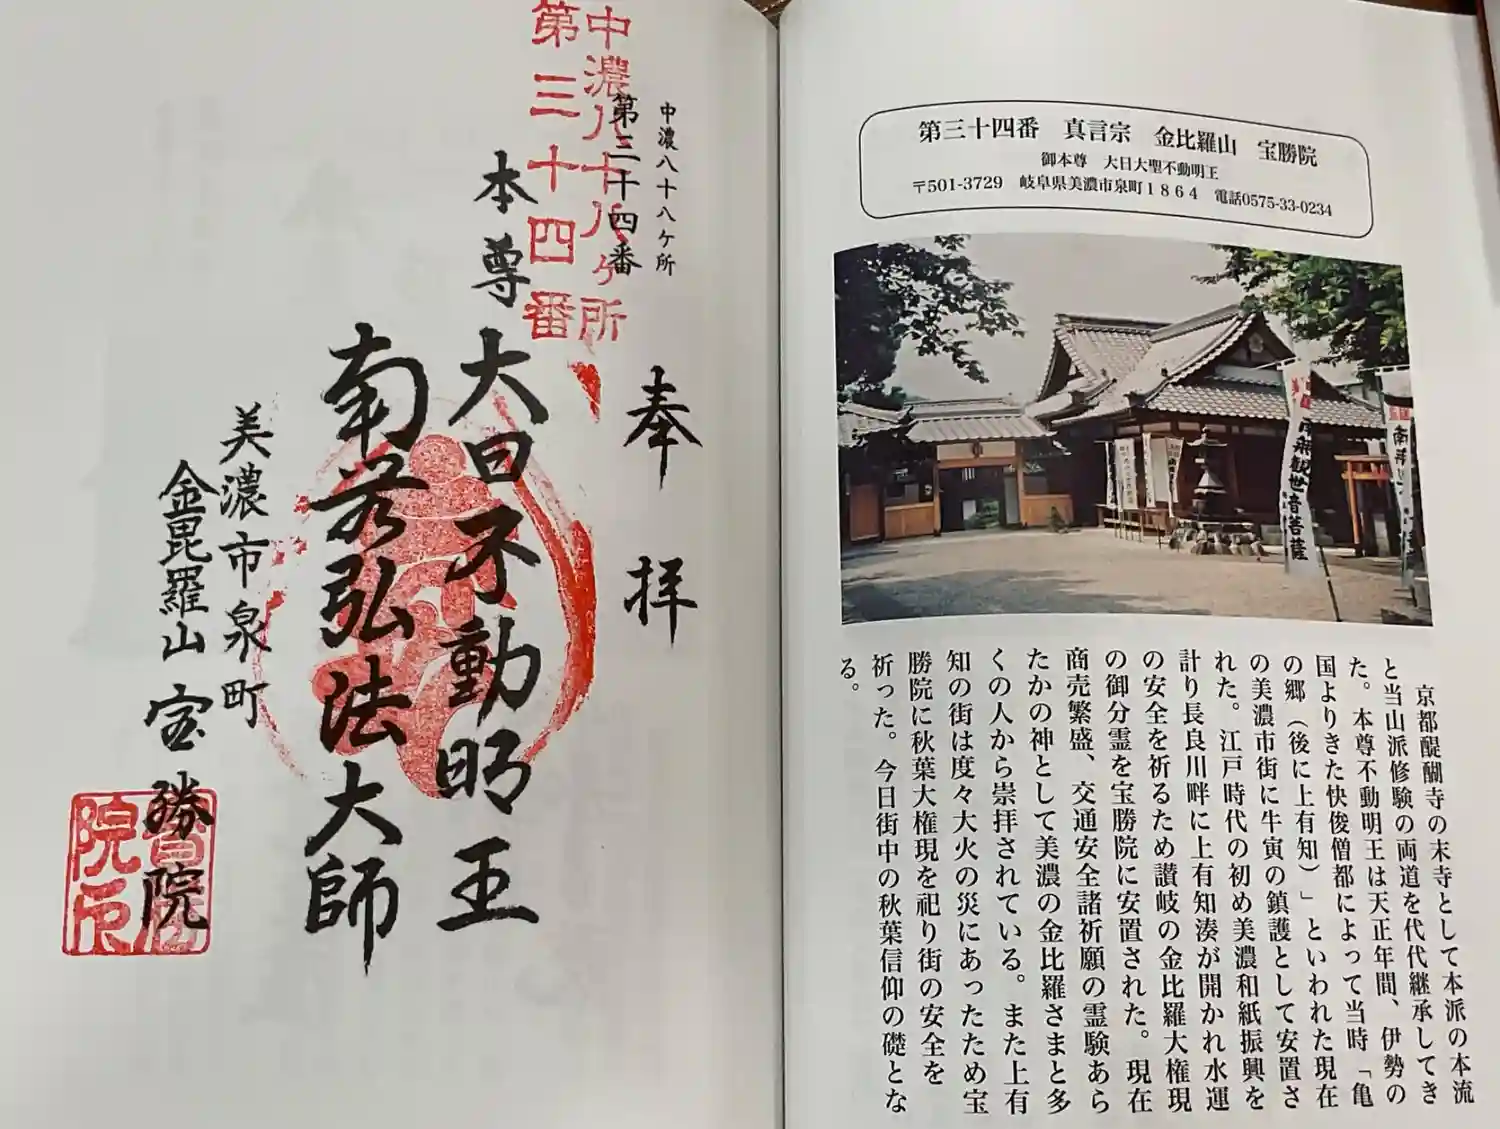 中濃八十八ヶ所
第三十四番
中濃八十八ヶ所
第三十四番
奉拝
本尊
大日不動明王
南無弘法大師
美濃市泉町
金毘羅山 宝勝院
院
第三十四番 真言宗 金比羅山 宝勝院
御本尊 大日大聖不動明王
〒501-3729 岐阜県美濃市泉町1864 電話0575-33-0234
南無観世音菩薩
京都醍醐寺の末寺として本派の本流
と当山派修験の両道を代代継承してき
た。本尊不動明王は天正年間、伊勢の
国よりきた快俊僧都によって当時「亀
の郷(後に上有知)」といわれた現在
の美濃市街に牛寅の鎮護として安置さ
れた。江戸時代の初め美濃和紙振興を
計り長良川畔に上有知湊が開かれ水運
の安全を祈るため讃岐の金比羅大権現
の御分霊を宝勝院に安置された。現在
商売繁盛、交通安全諸祈願の霊験あら
たかの神として美濃の金比羅さまと多
くの人から崇拝されている。また上有
知の街は度々大火の災にあったため宝
勝院に秋葉大権現を祀り街の安全を
祈った。今日街中の秋葉信仰の礎とな
る。